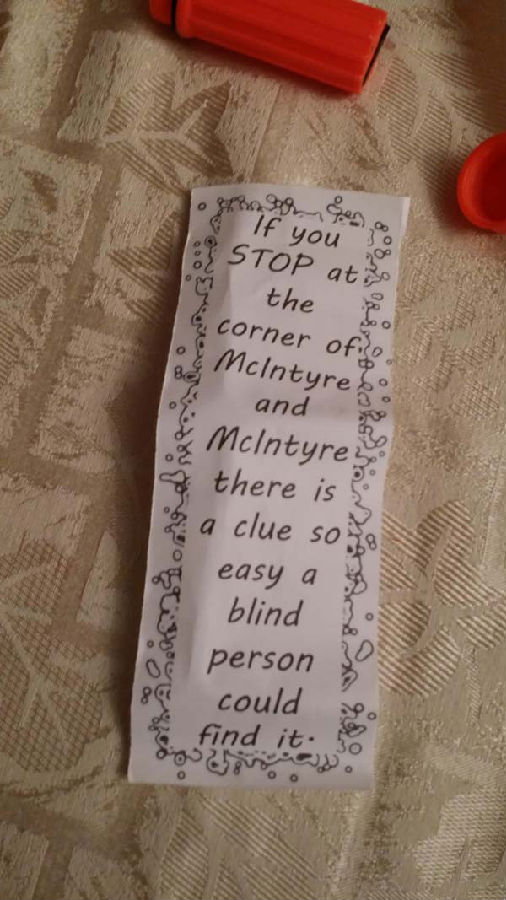 If you
STOP at
the
corner of
McIntyre
and
McIntyre
there is
a clue so
easy a
blind
person
could
find it.